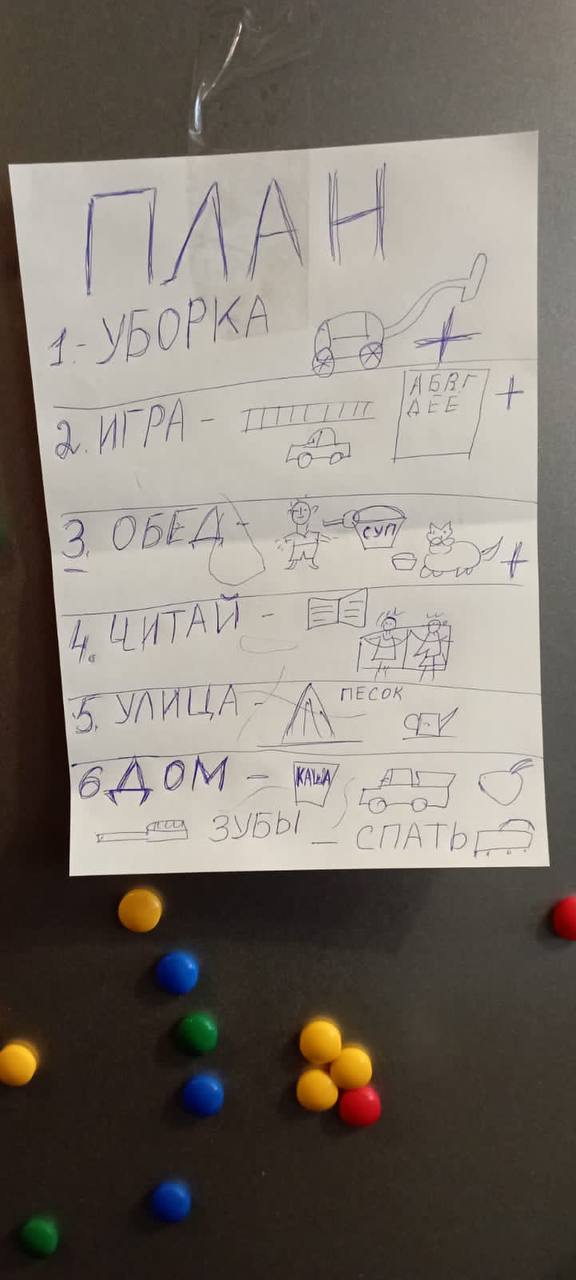 ПЛАН
1.- УБОРКА +
2. ИГРА - АБВГ +
ДЕЕ
3. ОБЕД - СУП +
4. ЧИТАЙ -
5. УЛИЦА - ПЕСОК
6 ДОМ - КАША
ЗУБЫ - СПАТЬ